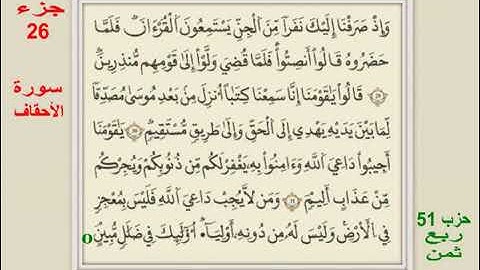 جزء
26
سورة
الأحقاف
وَإِذْ صَرَفْنَا إِلَيْكَ نَفَرًا مِّنَ ٱلْجِنِّ يَسْتَمِعُونَ ٱلْقُرْءَانَ فَلَمَّا
حَضَرُوهُ قَالُوا أَنصِتُوا فَلَمَّا قُضِيَ وَلَّوْا إِلَىٰ قَوْمِهِم مُّنذِرِينَ
قَالُوا يَٰقَوْمَنَا إِنَّا سَمِعْنَا كِتَٰبًا أُنزِلَ مِنۢ بَعْدِ مُوسَىٰ مُصَدِّقًا
لِّمَا بَيْنَ يَدَيْهِ يَهْدِي إِلَى ٱلْحَقِّ وَإِلَىٰ طَرِيقٍ مُّسْتَقِيمٍ يَٰقَوْمَنَا
أَجِيبُوا دَاعِيَ ٱللَّهِ وَءَامِنُوا بِهِۦ يَغْفِرْ لَكُم مِّن ذُنُوبِكُمْ وَيُجِرْكُم
مِّنْ عَذَابٍ أَلِيمٍ وَمَن لَّا يُجِبْ دَاعِيَ ٱللَّهِ فَلَيْسَ بِمُعْجِزٍ
فِي ٱلْأَرْضِ وَلَيْسَ لَهُۥ مِن دُونِهِۦ أَوْلِيَآءُ أُوْلَٰٓئِكَ فِي ضَلَٰلٍ مُّبِينٍ
حزب 51
ربع
ثمن